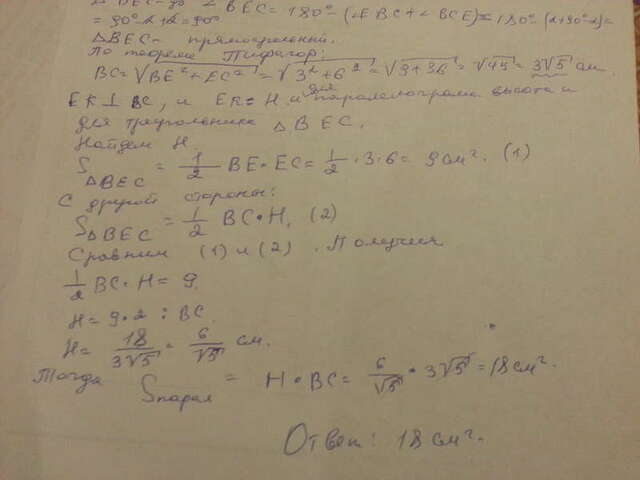 ∠BEC = 180° - (∠EBC + ∠BCE) = 180° - (α + 90° - α) =
= 90° - α + α = 90°
△BEC - прямоугольный.
По теореме Пифагора:
BC = √BE² + EC² = √3² + 6² = √9 + 36 = √45 = 3√5 см
EK ⊥ BC, и EK = H и для паралелограма высота и
для треугольника △BEC.
Найдем H.
S△BEC = 1/2 BE · EC = 1/2 · 3 · 6 = 9 см². (1)
С другой стороны:
S△BEC = 1/2 BC · H, (2)
Сравним (1) и (2). Получим
1/2 BC · H = 9.
H = 9 · 2 : BC.
H = 18/3√5 = 6/√5 см.
Тогда Sпарал = H · BC = 6/√5 · 3√5 = 18 см².
Ответ: 18 см².